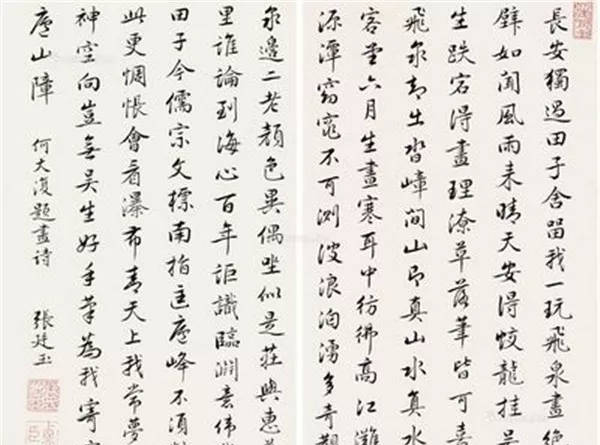 長安獨過田子舍留我一玩飛泉畫絕
壁如聞風雨来晴天安得蛟龍挂吴
生跌宕得畫理潦草落筆皆可喜
飛泉却出沓嶂間山即真山水真水
客堂六月生晝寒耳中彷彿高江灘
源潭窈窕不可测波浪洶湧多奇觀
泉邊二老顏色異偶坐似是莊與惠
里誰論到海心百年詎識臨淵意偉
田子今儒宗文標南指匡廬峰不須對
此更惆悵會看瀑布青天上我常夢
神空向豈無吴生好手筆為我寄
廬山障 何大復題畫诗 張廷玉